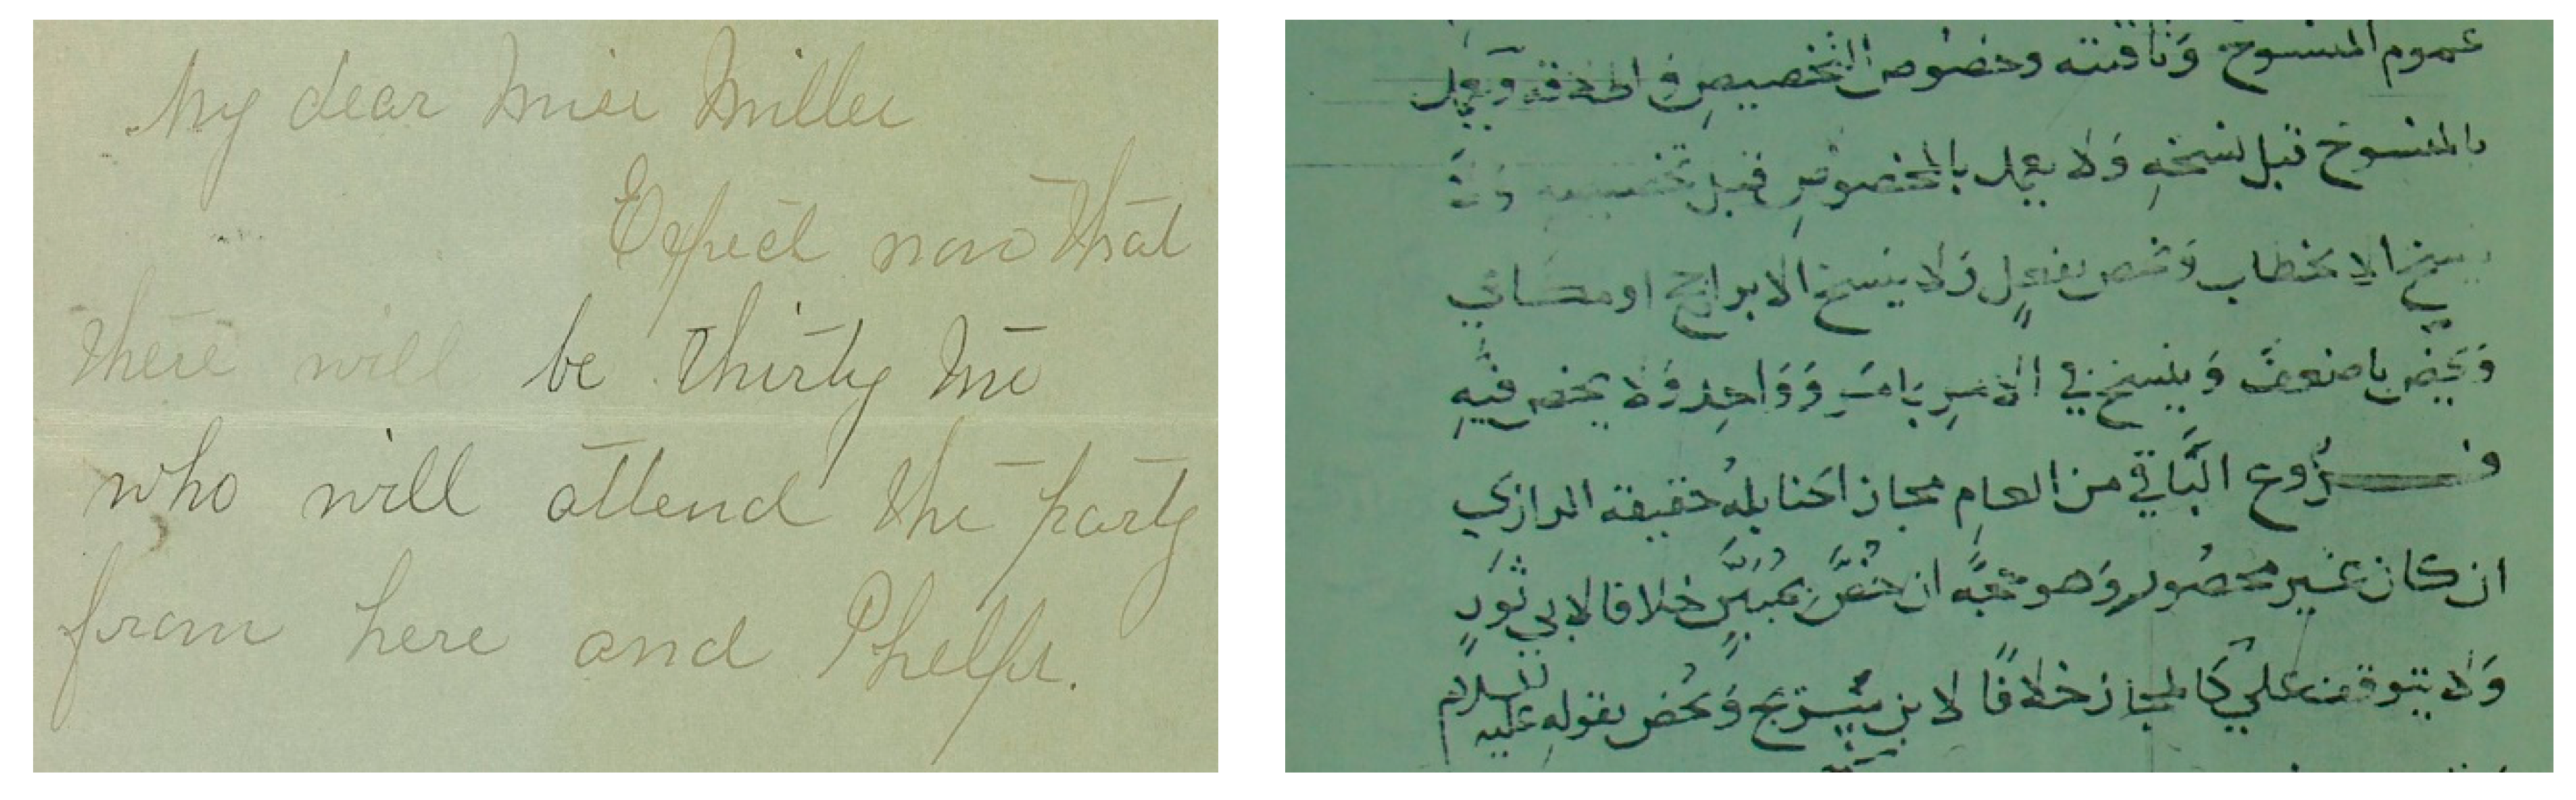 My dear Miss Miller
Expect now that
there will be thirty me
who will attend the party
from here and Phelps.
عموم المنسوخ وناقته وخصوص التخصيص في الملاقة ويعمل
بالمنسوخ قبل نسخه ولا يعمل بالمخصوص قبل تخصيصه
الا بخطاب وتخص بفعل ولا ينسخ الا براجح او مساوي
باضعف وينسخ في الامر بامر وواحد ولا يخص فيه
فروع الباقي من العام مجاز الحنابلة حقيقة الرازي
ان كان غير محصور وهو حجة ان خص بمبين خلافا لابي ثور
ولا يتوقف علي كالمجاز خلافا لابن سريج وخص بقوله عليه السلام